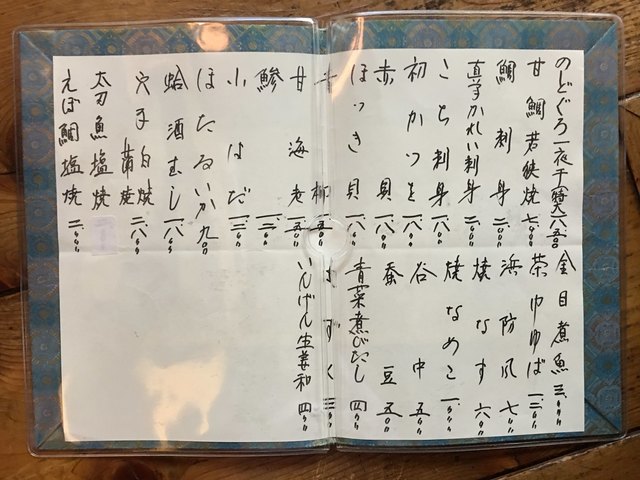 のどぐろ一夜干
甘鯛若狭焼 七、〇〇〇
鯛刺身 二、〇〇〇
真子かれい刺身 二、〇〇〇
こち刺身 一、八〇〇
初かつを 一、八〇〇
赤貝 一、八〇〇
ほっき貝 一、八〇〇
小柱 一、五〇〇
甘海老 一、五〇〇
鯵
小はだ 一、三〇〇
ほたるいか 九〇〇
蛤酒むし 一、八〇〇
穴子 白焼 蒲焼 二、八〇〇
太刀魚塩焼
えぼ鯛塩焼 二、〇〇〇
金目煮魚 三、〇〇〇
茶ゆゆば 一、二〇〇
浜防風 七〇〇
焼なす 六〇〇
焼なめこ
谷中 五〇〇
蚕豆 五〇〇
青菜煮びたし 四〇〇
もずく 三〇〇
いんげん生姜和 四〇〇